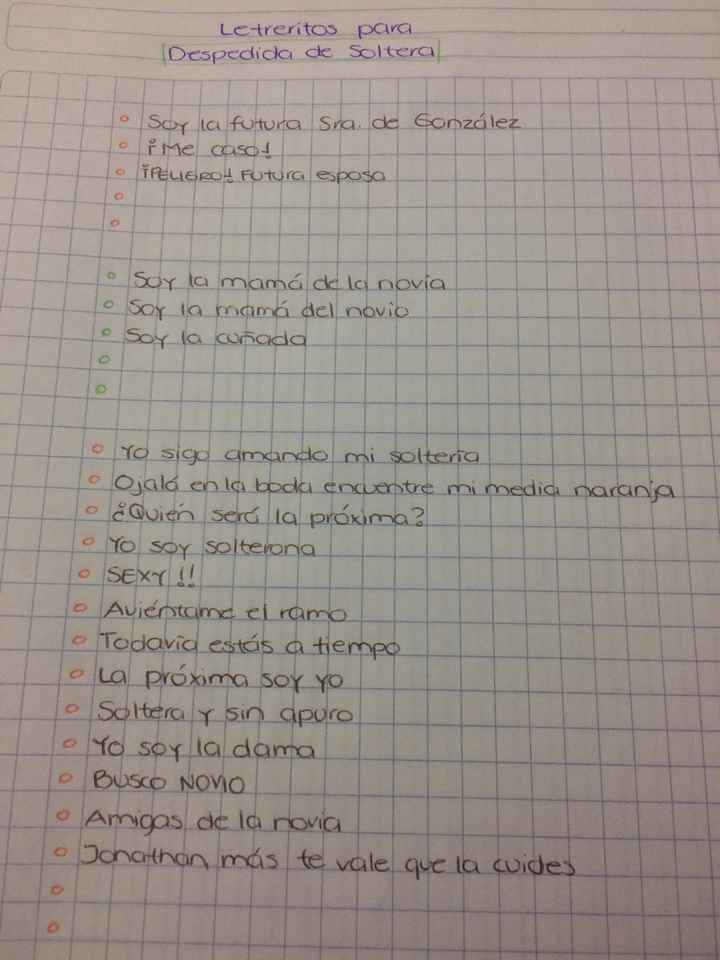 Letreritos para
Despedida de Soltera
Soy la futura Sra. de González
¡Me caso!
¡PELIGRO! Futura esposa
Soy la mamá de la novia
Soy la mamá del novio
Soy la cuñada
Yo sigo amando mi soltería
Ojalá en la boda encuentre mi media naranja
¿Quién será la próxima?
Yo soy solterona
SEXY !!
Aviéntame el ramo
Todavía estás a tiempo
La próxima soy yo
Soltera y sin apuro
Yo soy la dama
Busco Novio
Amigas de la novia
Jonathan, más te vale que la cuides